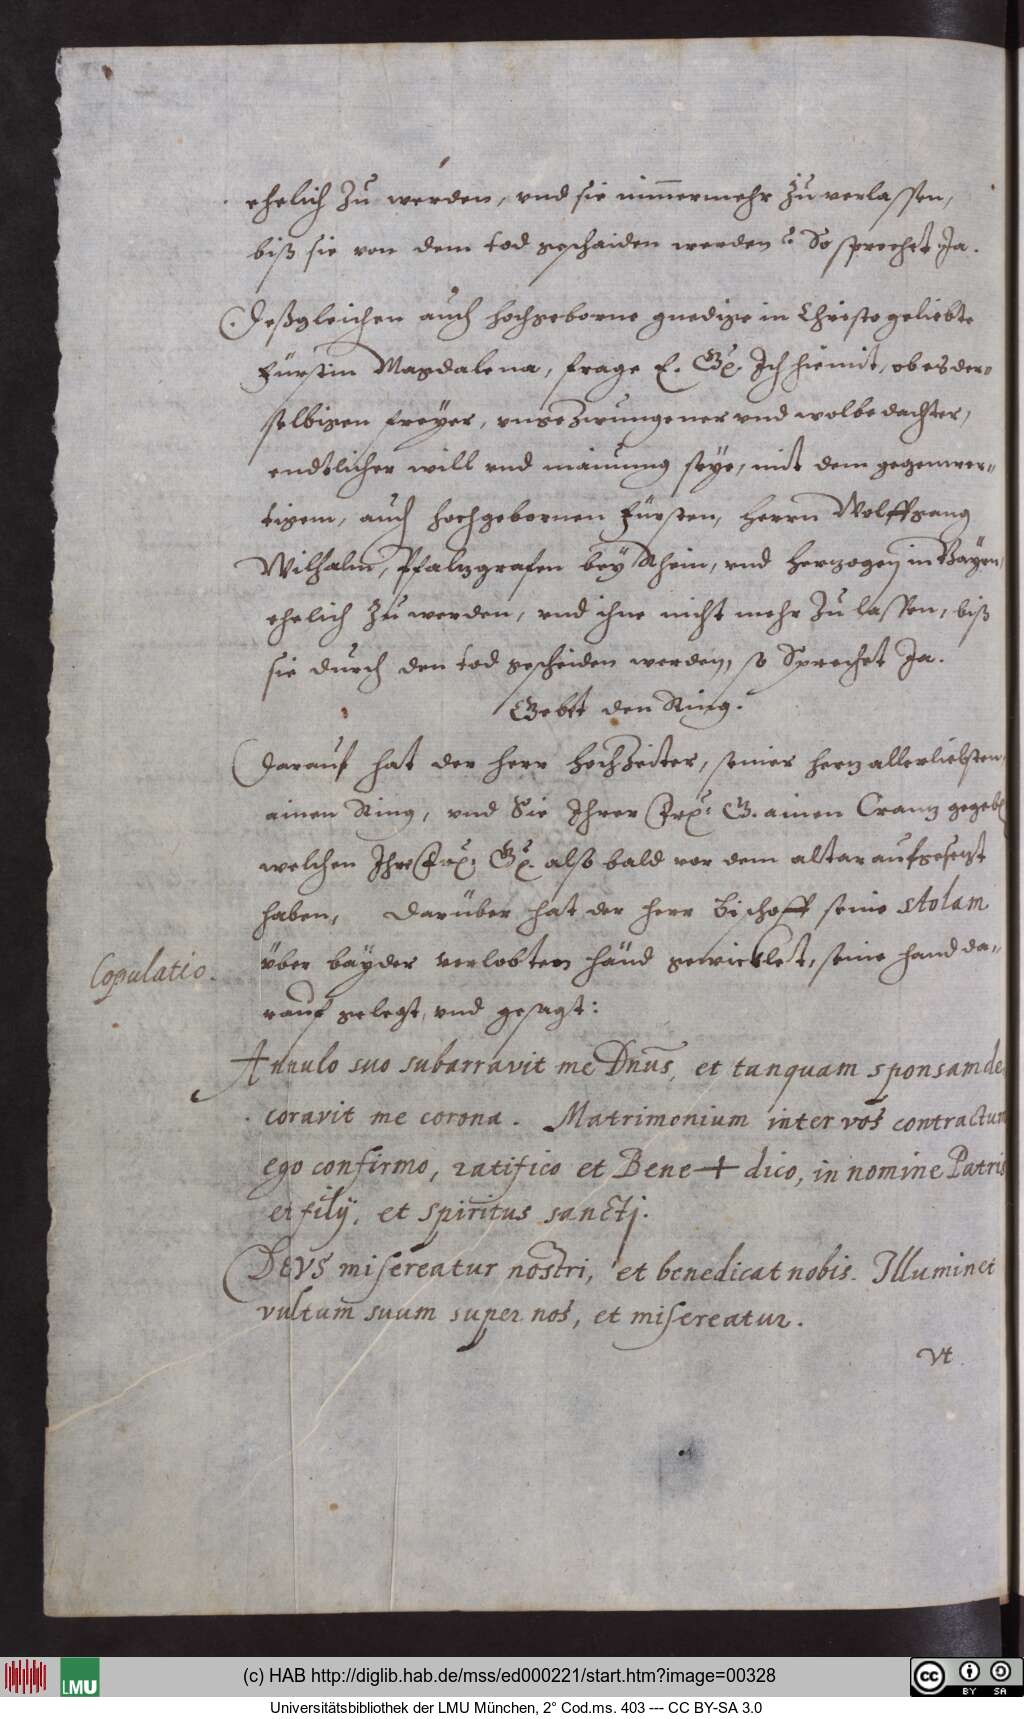 ehelich Zu werden, vnd sie nimmermehr Zu verlassen,
biß sie von dem tod geschaiden werden? So sprechet Ja.
Deßgleichen auch hochgeborne gnedige in Christo geliebte
Fürstin Magdalena, frage E. Ich hiemit, ob es der=
selbigen freyer, vngezwungener vnd wolbedachter,
endtlicher will vnd mainung seye, mit dem gegenwer=
tigem, auch hochgebornen Fürsten, Herrn Wolffgang
Wilhalm, Pfalzgrafen bey Rhein, vnd Herzogen in Bayrn,
ehelich Zu werden, vnd ihne nicht mehr Zu lassen, biß
sie durch den tod gescheiden werden, so Sprechet Ja.
Gebt den Ring.
Darauf hat der herr hochzeiter, seiner herz allerliebsten
ainen Ring, vnd Sie Ihrer G. ainen Cranz gegeben
welchen Ihre also bald vor dem altar aufgesezt
haben, Darüber hat der herr Bischoff seine stolam
über bayder verlobten händ gewicklet, seine hand da=
rauf gelegt, vnd gesagt:
Copulatio.
Annulo suo subarravit me Dnus, et tanquam sponsam de
coravit me corona. Matrimonium inter vos contractum
ego confirmo, ratifico et Bene + dico, in nomine Patris
et filij, et spiritus sancti.
DEVS misereatur nostri, et benedicat nobis. Illuminet
vultum suum super nos, et misereatur.
Vt
(c) HAB http://diglib.hab.de/mss/ed000221/start.htm?image=00328
LMU
CC BY SA
Universitätsbibliothek der LMU München, 2° Cod.ms. 403 --- CC BY-SA 3.0